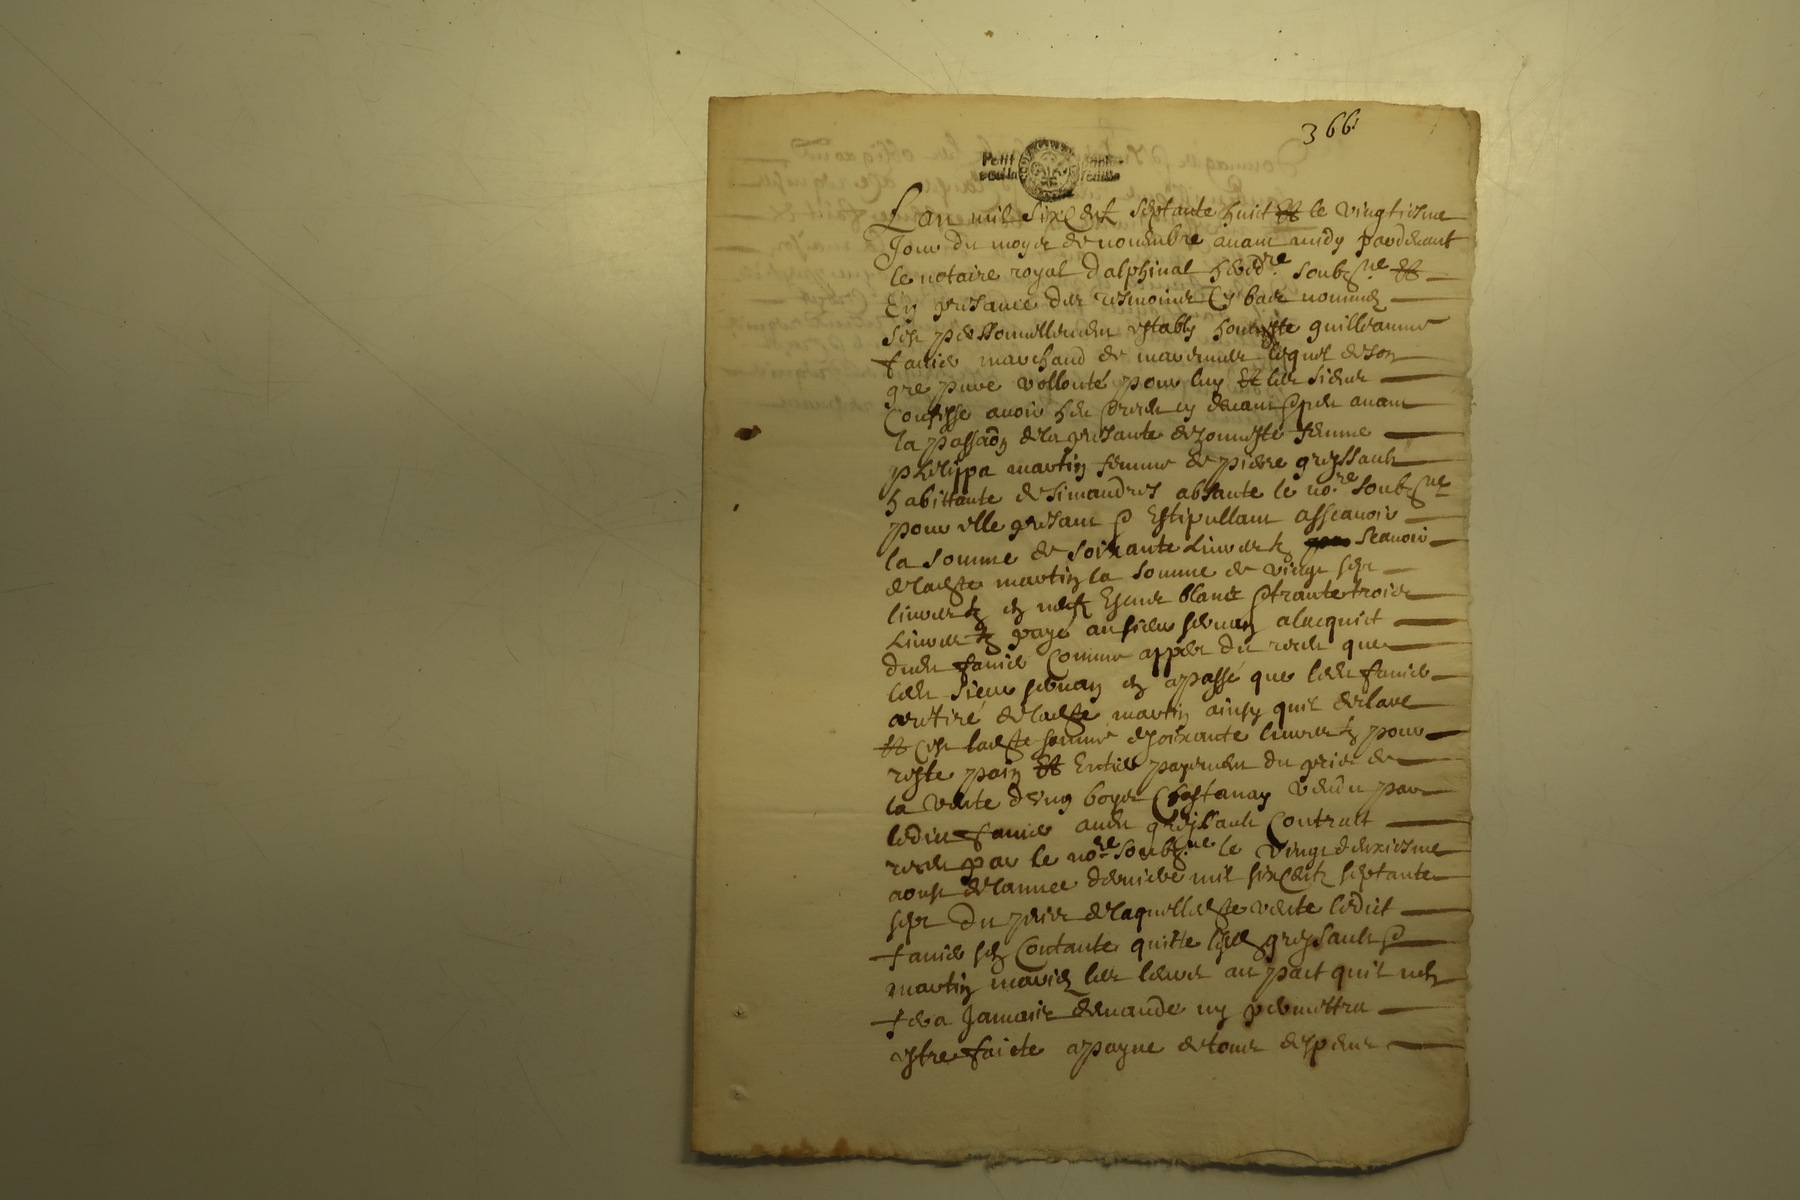 366
Petit
feuille
Lan mil six Cent septante huict et le vingtiesme
Jour du moys de novembre avant midy pardevant
le notaire royal dalphinal hered.re soubz.ne et
En presance des tesmoins Cy bas nommez
sest personnellement estably honneste guilleaume
favier marchand de marennes lequel de son
gre pure vollonté pour luy et les siens
Confesse avoir heu receu cy devant avant
la passaôn de la presante de honneste femme
philippa martin femme de pierre greyssault
habittante de simandres absante le no.re soubz.ne
pour elle presant & Estipullant assçavoir
la somme de soixante Livres tz sçavoir
de ladte martin la somme de vingt sept
livres tz en neuf Escus blancs & trante trois
Livres tz payé au sieur servan a lacquict
dudt favier Comme appert du receu que
ledt sieur servan en a passé que ledt favier
a retiré de ladte martin ainsy quil declare
et Cest ladte somme de soixante livres tz pour
reste pain et Entier payement du prix de
la vente dung boys Chastanay vendu par
ledict favier audt greyssault Contract
receu par le no.re soubz.ne le vingt deuxiesme
aoust de lannee derniere mil six Centz septante
sept du prix de laquelle dte vente ledict
favier sen Contante quitte lesd greysault &
martin mariez les leurs au pact quil nen
fera Jamais demande ny permettra
estre faicte a payne de tous despens